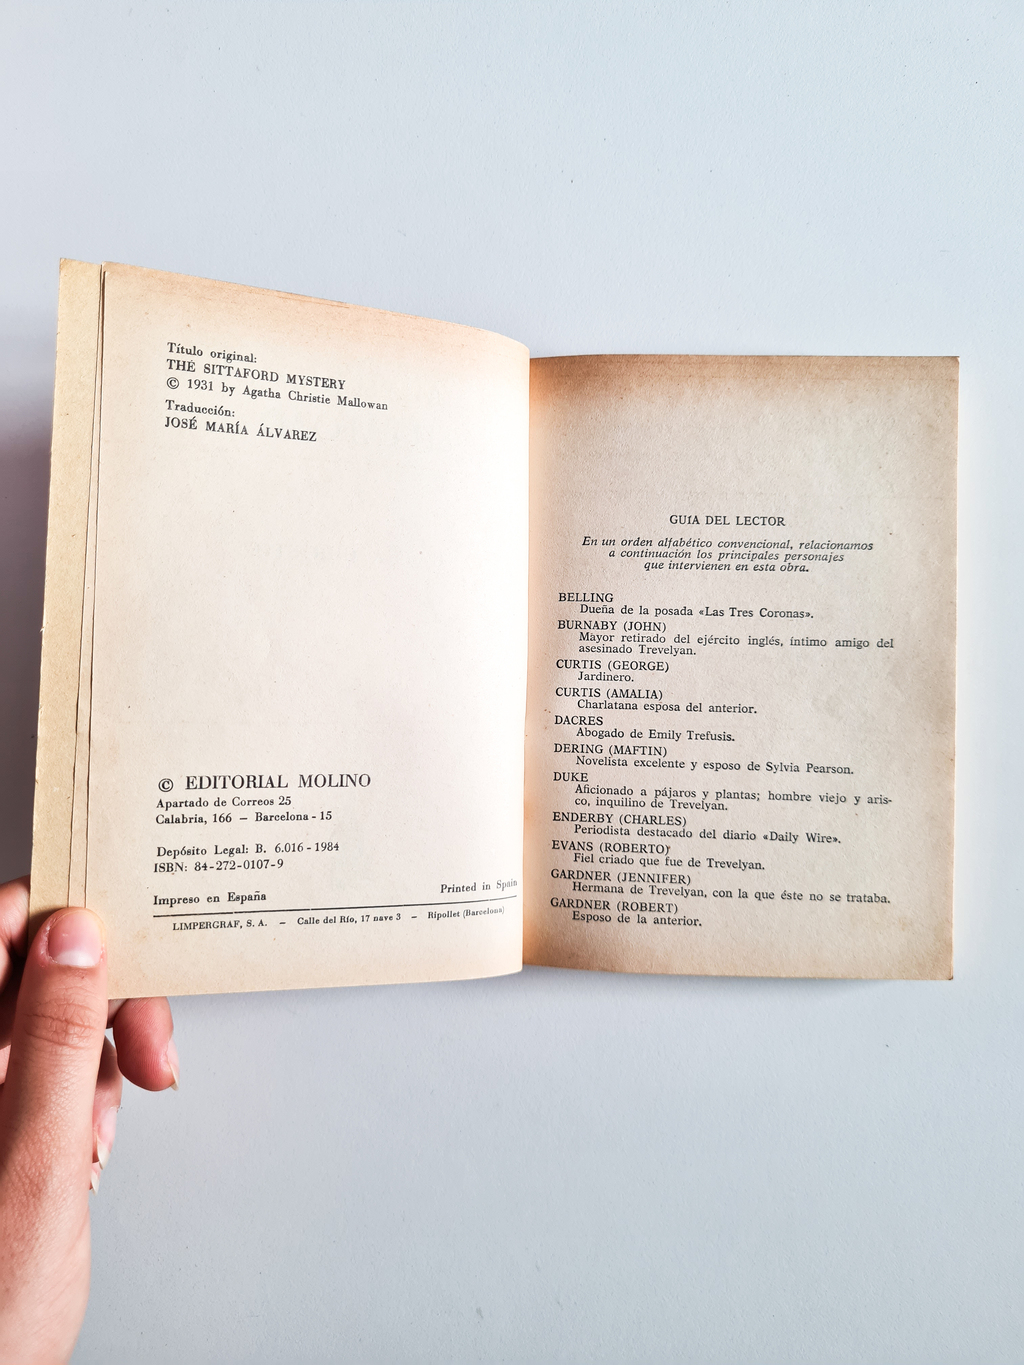 Título original:
THE SITTAFORD MYSTERY
© 1931 by Agatha Christie Mallowan
Traducción:
JOSÉ MARÍA ÁLVAREZ
© EDITORIAL MOLINO
Apartado de Correos 25
Calabria, 166 — Barcelona - 15
Depósito Legal: B. 6.016 - 1984
ISBN: 84-272-0107-9
Impreso en España
Printed in Spain
LIMPERGRAF, S. A. — Calle del Río, 17 nave 3 — Ripollet (Barcelona)
GUÍA DEL LECTOR
En un orden alfabético convencional, relacionamos
a continuación los principales personajes
que intervienen en esta obra.
BELLING
Dueña de la posada «Las Tres Coronas».
BURNABY (JOHN)
Mayor retirado del ejército inglés, íntimo amigo del
asesinado Trevelyan.
CURTIS (GEORGE)
Jardinero.
CURTIS (AMALIA)
Charlatana esposa del anterior.
DACRES
Abogado de Emily Trefusis.
DERING (MAFTIN)
Novelista excelente y esposo de Sylvia Pearson.
DUKE
Aficionado a pájaros y plantas; hombre viejo y aris-
co, inquilino de Trevelyan.
ENDERBY (CHARLES)
Periodista destacado del diario «Daily Wire».
EVANS (ROBERTO)
Fiel criado que fue de Trevelyan.
GARDNER (JENNIFER)
Hermana de Trevelyan, con la que éste no se trataba.
GARDNER (ROBERT)
Esposo de la anterior.